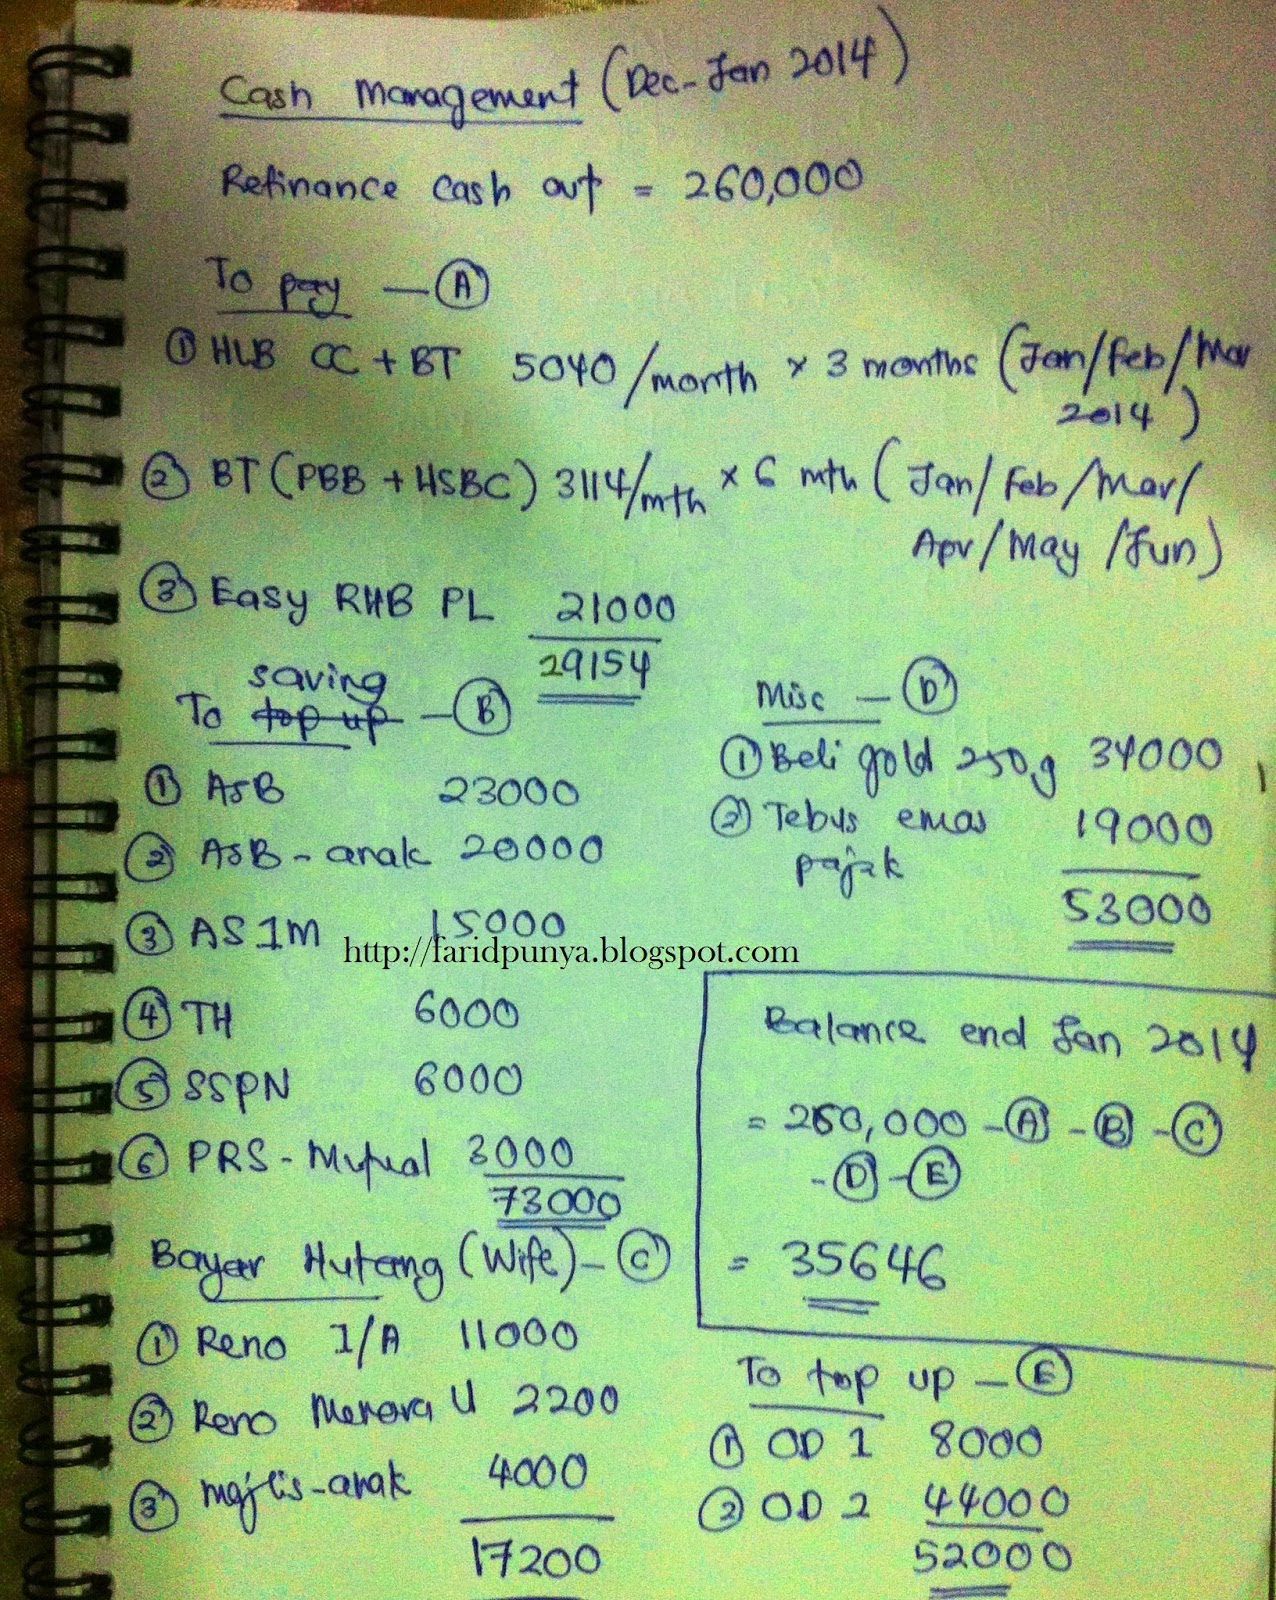 Cash Management (Dec-Jan 2014)
Refinance cash out = 260,000
To pay — A
① HLB CC + BT 5040/month × 3 months (Jan/Feb/Mar
2014)
② BT (PBB + HSBC) 3114/mth × 6 mth (Jan/Feb/Mar/
Apr/May/Jun)
③ Easy RHB PL 21000
29154
saving
To top up — B
① ASB 23000
② ASB - anak 20000
③ AS1M 15000
④ TH 6000
⑤ SSPN 6000
⑥ PRS - Mutual 3000
73000
Bayar Hutang (Wife) - C
① Reno I/A 11000
② Reno Menara U 2200
③ majlis - anak 4000
17200
Misc — D
① Beli gold 250g 34000
② Tebus emas 19000
pajak
53000
Balance end Jan 2014
= 260,000 - A - B - C
- D - E
= 35646
To top up — E
① OD 1 8000
② OD 2 44000
52000
http://faridpunya.blogspot.com